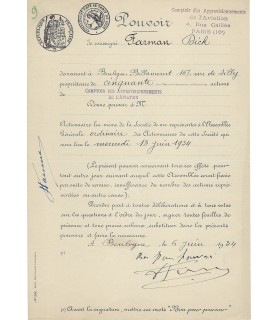 9
Comptoir des Approvisionnements
de l'Aviation
4, Rue Galilée
PARIS (16e)
Pouvoir
Je soussigné Farman Dick
demeurant à Boulogne Billancourt 167, rue de Silly
propriétaire de cinquante actions
de COMPTOIR DES APPROVISIONNEMENTS
DE L'AVIATION
Donne pouvoir à M
Actionnaire lui même de la Société de me représenter à l'Assemblée
Générale ordinaire des Actionnaires de cette Société qui
aura lieu le mercredi 13 juin 1934
Le présent pouvoir conservant tous ses effets pour
toute autre date, au cas auquel cette Assemblée serait remise
par suite de insuffisance du nombre des actions repré-
sentées ou autre cause
Prendre part à toutes délibérations et à tous votes
sur les questions à l'ordre du jour, signer toutes feuilles de
présence et tous procès verbaux, substituer dans les présents
pouvoirs et faire le nécessaire.
A Boulogne le 6 juin 1934
Bon pour pouvoir
Farman
(1) Avant la signature, mettre ces mots "Bon pour pouvoir"